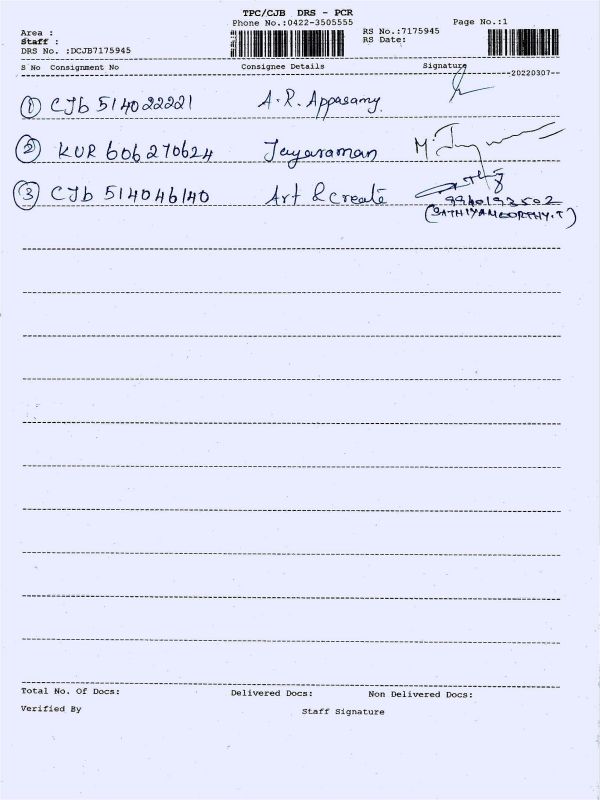 TPC/CJB DRS - PCR
Phone No.:0422-3505555
Page No.:1
Area :
RS No.:7175945
Staff :
RS Date:
DRS No. :DCJB7175945
S No Consignment No Consignee Details Signature
20220307
1 CJb 514022221 A.R. Appasamy
2 KUR 606270624 Jayaraman
3 CJb 514046140 Art & Create
9940192502
(SATHIYAMOORTHY.T)
Total No. Of Docs: Delivered Docs: Non Delivered Docs:
Verified By Staff Signature